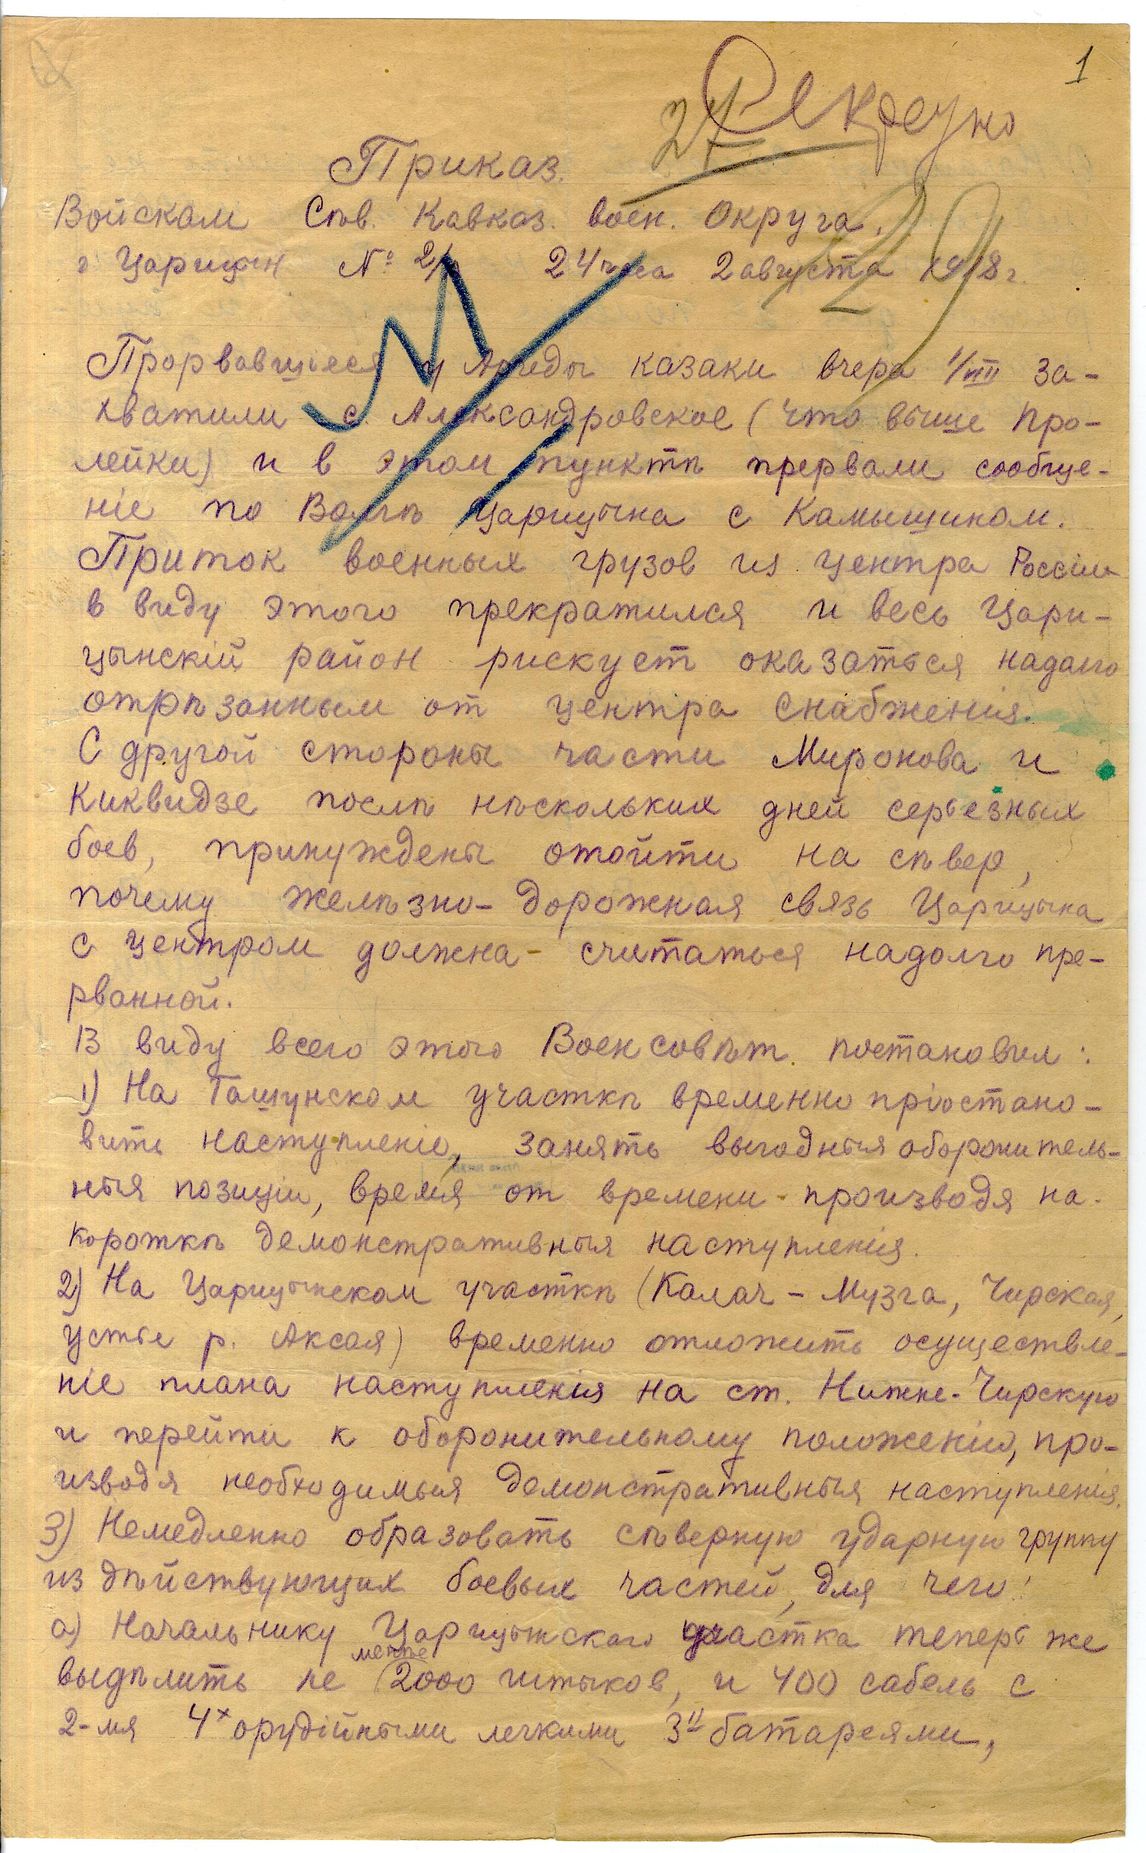 1
Секретно
27
29
Приказ.
Войскам Сѣв. Кавказ. воен. Округа.
г Царицын № 2/ 24 часа 2 августа 1918 г.
Прорвавшіеся у Арчеды казаки вчера 1/VIII за-
хватили с. Александровское (что выше Про-
лейки) и в этом пунктѣ прервали сообще-
ніе по Волгѣ Царицына с Камышином.
Приток военных грузов из центра Россіи
в виду этого прекратился и весь Цари-
цынскій район рискует оказаться надолго
отрѣзанным от центра снабженія.
С другой стороны части Миронова и
Киквидзе послѣ нѣскольких дней серьезных
боев, принуждены отойти на сѣвер,
почему желѣзно-дорожная связь Царицына
с центром должна считаться надолго пре-
рванной.
В виду всего этого Военсовѣт постановил:
1) На Гашунском участкѣ временно пріостано-
вить наступленіе, занять выгодныя оборонитель-
ныя позиціи, время от времени производя на-
коротке демонстративныя наступленія.
2) На Царицынском участкѣ (Калач - Музга, Чирская,
устье р. Аксая) временно отложить осуществле-
ніе плана наступленія на ст. Нижне-Чирскую
и перейти к оборонительному положенію, про-
изводя необходимыя демонстративныя наступленія.
3) Немедленно образовать сѣверную ударную группу
из дѣйствующих боевых частей, для чего:
а) Начальнику Царицынского участка теперь же
выдѣлить не менѣе 2000 штыков, и 400 сабель с
2-мя 4х орудійными легкими 3й батареями,